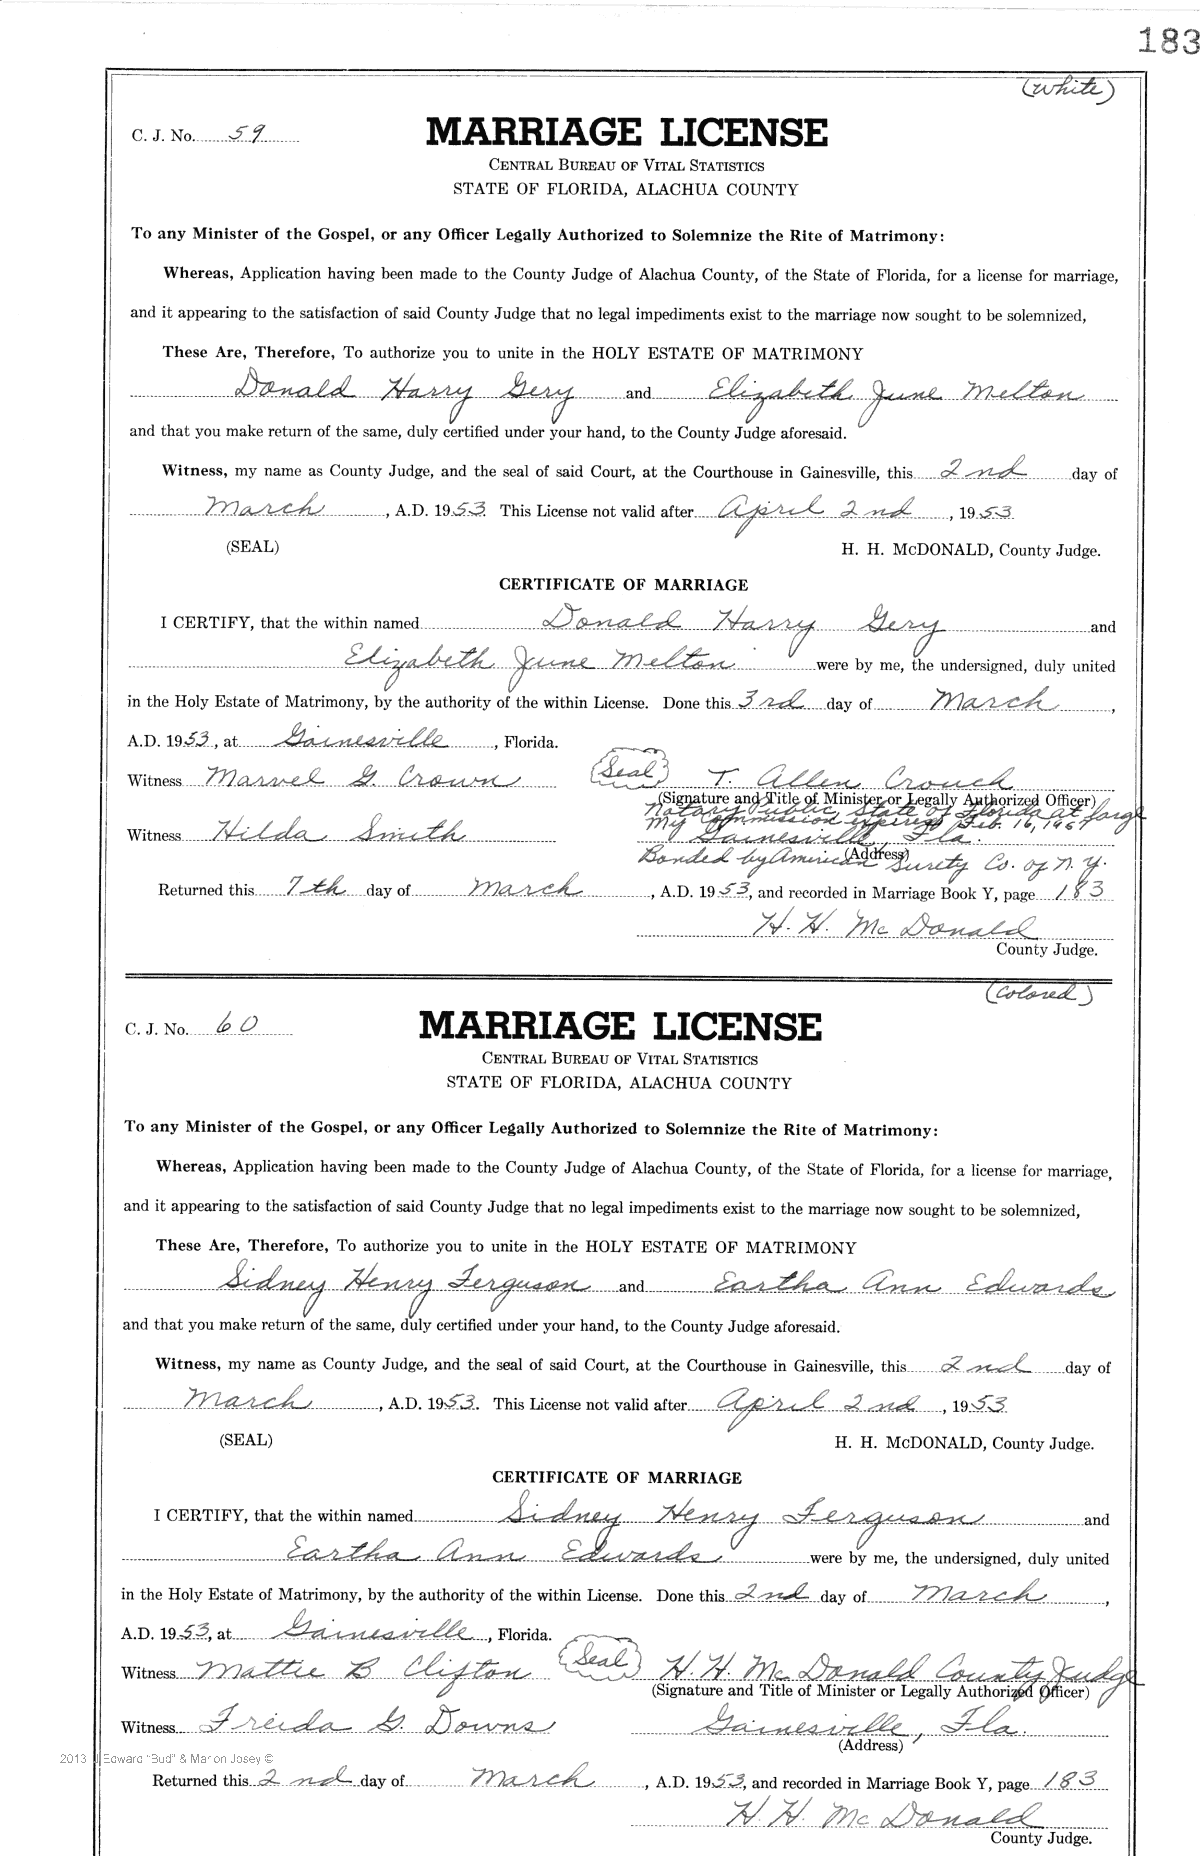 183
(White)
C. J. No. 59
MARRIAGE LICENSE
CENTRAL BUREAU OF VITAL STATISTICS
STATE OF FLORIDA, ALACHUA COUNTY
To any Minister of the Gospel, or any Officer Legally Authorized to Solemnize the Rite of Matrimony:
Whereas, Application having been made to the County Judge of Alachua County, of the State of Florida, for a license for marriage,
and it appearing to the satisfaction of said County Judge that no legal impediments exist to the marriage now sought to be solemnized,
These Are, Therefore, To authorize you to unite in the HOLY ESTATE OF MATRIMONY
Donald Harry Gery and Elizabeth June Melton
and that you make return of the same, duly certified under your hand, to the County Judge aforesaid.
Witness, my name as County Judge, and the seal of said Court, at the Courthouse in Gainesville, this 2nd day of
March, A.D. 1953 This License not valid after April 2nd, 1953
(SEAL) H. H. McDONALD, County Judge.
CERTIFICATE OF MARRIAGE
I CERTIFY, that the within named Donald Harry Gery and
Elizabeth June Melton were by me, the undersigned, duly united
in the Holy Estate of Matrimony, by the authority of the within License. Done this 3rd day of March,
A.D. 1953, at Gainesville, Florida.
Witness Marvel G. Crown (Seal) T. Allen Crouch
(Signature and Title of Minister or Legally Authorized Officer)
Notary Public State of Florida at large
My Commission expires Feb. 16, 195
Witness Hilda Smith Gainesville, Fla.
(Address)
Bonded by American Surety Co. of N. Y.
Returned this 7th day of March, A.D. 1953, and recorded in Marriage Book Y, page 183
H. H. McDonald
County Judge.
(Colored)
C. J. No. 60
MARRIAGE LICENSE
CENTRAL BUREAU OF VITAL STATISTICS
STATE OF FLORIDA, ALACHUA COUNTY
To any Minister of the Gospel, or any Officer Legally Authorized to Solemnize the Rite of Matrimony:
Whereas, Application having been made to the County Judge of Alachua County, of the State of Florida, for a license for marriage,
and it appearing to the satisfaction of said County Judge that no legal impediments exist to the marriage now sought to be solemnized,
These Are, Therefore, To authorize you to unite in the HOLY ESTATE OF MATRIMONY
Sidney Henry Ferguson and Eartha Ann Edwards
and that you make return of the same, duly certified under your hand, to the County Judge aforesaid.
Witness, my name as County Judge, and the seal of said Court, at the Courthouse in Gainesville, this 2nd day of
March, A.D. 1953. This License not valid after April 2nd, 1953
(SEAL) H. H. McDONALD, County Judge.
CERTIFICATE OF MARRIAGE
I CERTIFY, that the within named Sidney Henry Ferguson and
Eartha Ann Edwards were by me, the undersigned, duly united
in the Holy Estate of Matrimony, by the authority of the within License. Done this 2nd day of March,
A.D. 1953, at Gainesville, Florida.
Witness Mattie B Clifton (Seal) H. H. McDonald County Judge
(Signature and Title of Minister or Legally Authorized Officer)
Witness Freida G. Downs Gainesville, Fla.
(Address)
2013 J Edward "Bud" & Marion Josey ©
Returned this 2nd day of March, A.D. 1953, and recorded in Marriage Book Y, page 183
H. H. McDonald
County Judge.